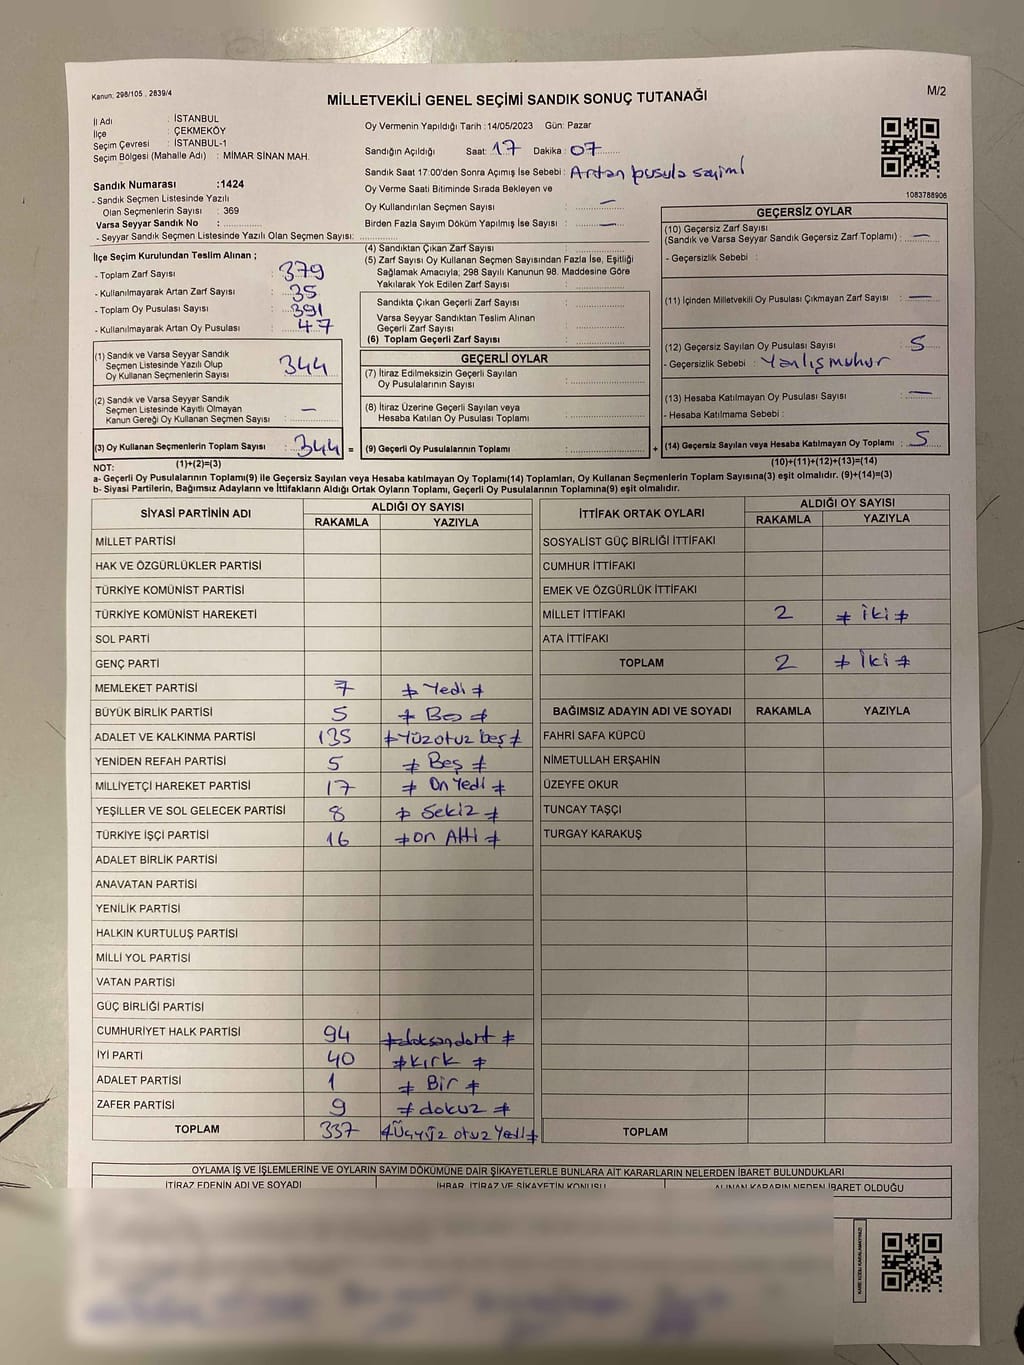 Kanun: 298/105 , 2839/4
MİLLETVEKİLİ GENEL SEÇİMİ SANDIK SONUÇ TUTANAĞI
M/2
İl Adı : İSTANBUL
İlçe : ÇEKMEKÖY
Seçim Çevresi : İSTANBUL-1
Seçim Bölgesi (Mahalle Adı) : MİMAR SİNAN MAH.
Oy Vermenin Yapıldığı Tarih : 14/05/2023 Gün: Pazar
Sandığın Açıldığı Saat: 17 Dakika : 07
Sandık Saat 17:00'den Sonra Açımış İse Sebebi : Artan pusula sayimı
Oy Verme Saati Bitiminde Sırada Bekleyen ve
Oy Kullandırılan Seçmen Sayısı : —
Birden Fazla Sayım Döküm Yapılmış İse Sayısı : —
1083788906
Sandık Numarası :1424
- Sandık Seçmen Listesinde Yazılı
Olan Seçmenlerin Sayısı : 369
Varsa Seyyar Sandık No :
- Seyyar Sandık Seçmen Listesinde Yazılı Olan Seçmen Sayısı:
İlçe Seçim Kurulundan Teslim Alınan ;
- Toplam Zarf Sayısı : 379
- Kullanılmayarak Artan Zarf Sayısı : 35
- Toplam Oy Pusulası Sayısı : 391
- Kullanılmayarak Artan Oy Pusulası : 47
(1) Sandık ve Varsa Seyyar Sandık
Seçmen Listesinde Yazılı Olup
Oy Kullanan Seçmenlerin Sayısı : 344
(2) Sandık ve Varsa Seyyar Sandık
Seçmen Listesinde Kayıtlı Olmayan
Kanun Gereği Oy Kullanan Seçmen Sayısı : —
(3) Oy Kullanan Seçmenlerin Toplam Sayısı : 344 =
(1)+(2)=(3)
(4) Sandıktan Çıkan Zarf Sayısı :
(5) Zarf Sayısı Oy Kullanan Seçmen Sayısından Fazla İse, Eşitliği
Sağlamak Amacıyla; 298 Sayılı Kanunun 98. Maddesine Göre
Yakılarak Yok Edilen Zarf Sayısı :
Sandıkta Çıkan Geçerli Zarf Sayısı :
Varsa Seyyar Sandıktan Teslim Alınan
Geçerli Zarf Sayısı :
(6) Toplam Geçerli Zarf Sayısı :
GEÇERLİ OYLAR
(7) İtiraz Edilmeksizin Geçerli Sayılan
Oy Pusulalarının Sayısı :
(8) İtiraz Üzerine Geçerli Sayılan veya
Hesaba Katılan Oy Pusulaları Toplamı :
(9) Geçerli Oy Pusulalarının Toplamı : +
GEÇERSİZ OYLAR
(10) Geçersiz Zarf Sayısı
(Sandık ve Varsa Seyyar Sandık Geçersiz Zarf Toplamı) : —
- Geçersizlik Sebebi :
(11) İçinden Milletvekili Oy Pusulası Çıkmayan Zarf Sayısı : —
(12) Geçersiz Sayılan Oy Pusulası Sayısı : 5
- Geçersizlik Sebebi : Yanlış muhur
(13) Hesaba Katılmayan Oy Pusulası Sayısı : —
- Hesaba Katılmama Sebebi :
(14) Geçersiz Sayılan veya Hesaba Katılmayan Oy Toplamı : 5
(10)+(11)+(12)+(13)=(14)
NOT:
a- Geçerli Oy Pusulalarının Toplamı(9) ile Geçersiz Sayılan veya Hesaba katılmayan Oy Toplamı(14) Toplamları, Oy Kullanan Seçmenlerin Toplam Sayısına(3) eşit olmalıdır. (9)+(14)=(3)
b- Siyasi Partilerin, Bağımsız Adayların ve İttifakların Aldığı Ortak Oyların Toplamı, Geçerli Oy Pusulalarının Toplamına(9) eşit olmalıdır.
SİYASİ PARTİNİN ADI ALDIĞI OY SAYISI
RAKAMLA YAZIYLA
MİLLET PARTİSİ
HAK VE ÖZGÜRLÜKLER PARTİSİ
TÜRKİYE KOMÜNİST PARTİSİ
TÜRKİYE KOMÜNİST HAREKETİ
SOL PARTİ
GENÇ PARTİ
MEMLEKET PARTİSİ 7 ≠ Yedi ≠
BÜYÜK BİRLİK PARTİSİ 5 ≠ Beş ≠
ADALET VE KALKINMA PARTİSİ 135 ≠ Yüzotuz beş ≠
YENİDEN REFAH PARTİSİ 5 ≠ Beş ≠
MİLLİYETÇİ HAREKET PARTİSİ 17 ≠ On Yedi ≠
YEŞİLLER VE SOL GELECEK PARTİSİ 8 ≠ Sekiz ≠
TÜRKİYE İŞÇİ PARTİSİ 16 ≠ on Altı ≠
ADALET BİRLİK PARTİSİ
ANAVATAN PARTİSİ
YENİLİK PARTİSİ
HALKIN KURTULUŞ PARTİSİ
MİLLİ YOL PARTİSİ
VATAN PARTİSİ
GÜÇ BİRLİĞİ PARTİSİ
CUMHURİYET HALK PARTİSİ 94 ≠ doksandört ≠
İYİ PARTİ 40 ≠ kırk ≠
ADALET PARTİSİ 1 ≠ Bir ≠
ZAFER PARTİSİ 9 ≠ dokuz ≠
TOPLAM 337 ≠ Üçyüz otuz Yedi ≠
İTTİFAK ORTAK OYLARI ALDIĞI OY SAYISI
RAKAMLA YAZIYLA
SOSYALİST GÜÇ BİRLİĞİ İTTİFAKI
CUMHUR İTTİFAKI
EMEK VE ÖZGÜRLÜK İTTİFAKI
MİLLET İTTİFAKI 2 ≠ İki ≠
ATA İTTİFAKI
TOPLAM 2 ≠ İki ≠
BAĞIMSIZ ADAYIN ADI VE SOYADI RAKAMLA YAZIYLA
FAHRİ SAFA KÜPCÜ
NİMETULLAH ERŞAHİN
ÜZEYFE OKUR
TUNCAY TAŞÇI
TURGAY KARAKUŞ
TOPLAM
OYLAMA İŞ VE İŞLEMLERİNE VE OYLARIN SAYIM DÖKÜMÜNE DAİR ŞİKAYETLERLE BUNLARA AİT KARARLARIN NELERDEN İBARET BULUNDUKLARI
İTİRAZ EDENİN ADI VE SOYADI İHBAR, İTİRAZ VE ŞİKAYETİN KONUSU ALINAN KARARIN NEDEN İBARET OLDUĞU